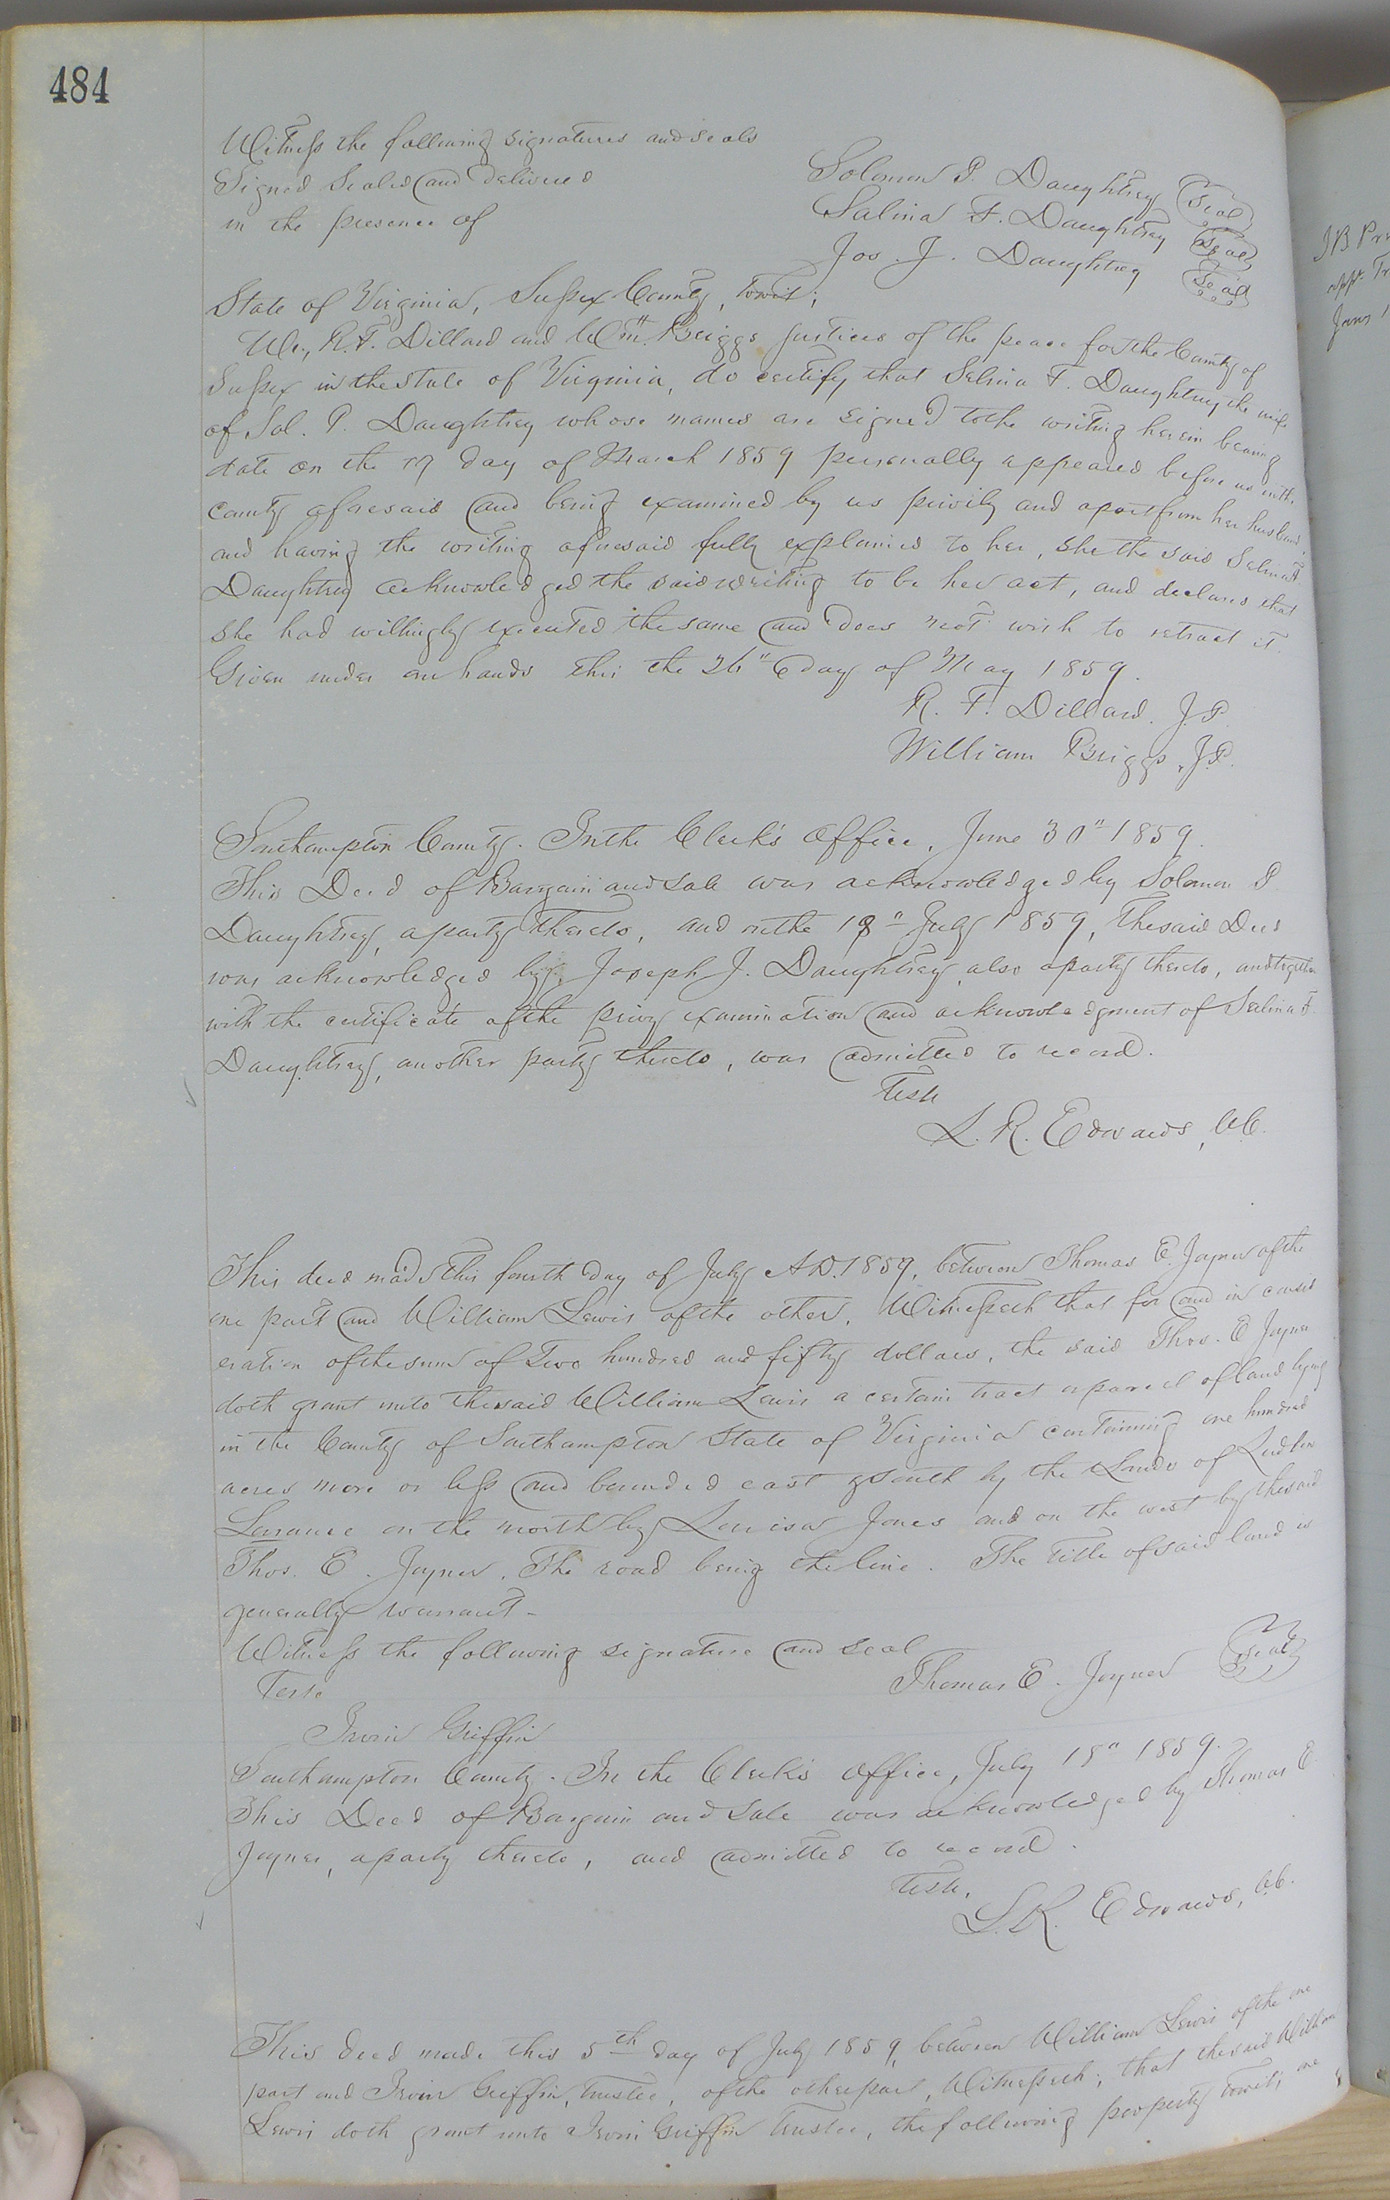 484
Witness the following signatures and seals
Signed Sealed and delivered
in the presence of
Solomon P. Daughtrey Seal
Salina F. Daughtrey Seal
Jos. J. Daughtrey Seal
State of Virginia, Sussex County, towit;
We, R. F. Dillard and Wm. Briggs Justices of the peace for the County of
Sussex in the State of Virginia, do certify that Selina F. Daughtrey the wife
of Sol. P. Daughtrey whose names are signed to the writing herein bearing
date on the 17 day of March 1859 personally appeared before us in the
county aforesaid and being examined by us privily and apart from her husband,
and having the writing aforesaid fully explained to her, she the said Selina F
Daughtrey acknowledged the said writing to be her act, and declares that
she had willingly executed the same and does not wish to retract it.
Given under our hands this the 26" day of May 1859.
R. F. Dillard. J.P.
William Briggs, J.P.
Southampton County. In the Clerk's Office, June 30" 1859.
This Deed of Bargain and Sale was acknowledged by Solomon P
Daughtrey, a party thereto, and on the 18" July 1859, the said Deed
was acknowledged by Joseph J. Daughtrey, also a party thereto, and together
with the certificate of the privy examination and acknowledgment of Salina F.
Daughtrey, another party thereto, was admitted to record.
Teste
L. R. Edwards, C.C.
This deed made this fourth day of July A.D. 1859, between Thomas E. Joyner of the
one part and William Lewis of the other, Witnesseth that for and in consid
eration of the sum of Two hundred and fifty dollars, the said Thos. E Joyner
doth grant unto the said William Lewis a certain tract or parcel of land lying
in the County of Southampton State of Virginia containing one hundred
acres more or less and bounded east & south by the Lands of
on the north by Louisa Jones and on the west by the said
Thos. E. Joyner, The road being the line. The title of said land is
generally warrant-
Witness the following signature and seal
Thomas E. Joyner Seal
Teste
Irvin Griffin
Southampton County. In the Clerk's Office, July 18" 1859.
This Deed of Bargain and Sale was acknowledged by Thomas E.
Joyner, a party thereto, and admitted to record.
Teste,
L. R. Edwards, C.C.
This deed made this 5th day of July 1859, between William Lewis of the one
part and Irvin Griffin, trustee, of the other part, Witnesseth; that the said William
Lewis doth grant unto Irvin Griffin trustee, the following property towit; one
J B
Jany 1